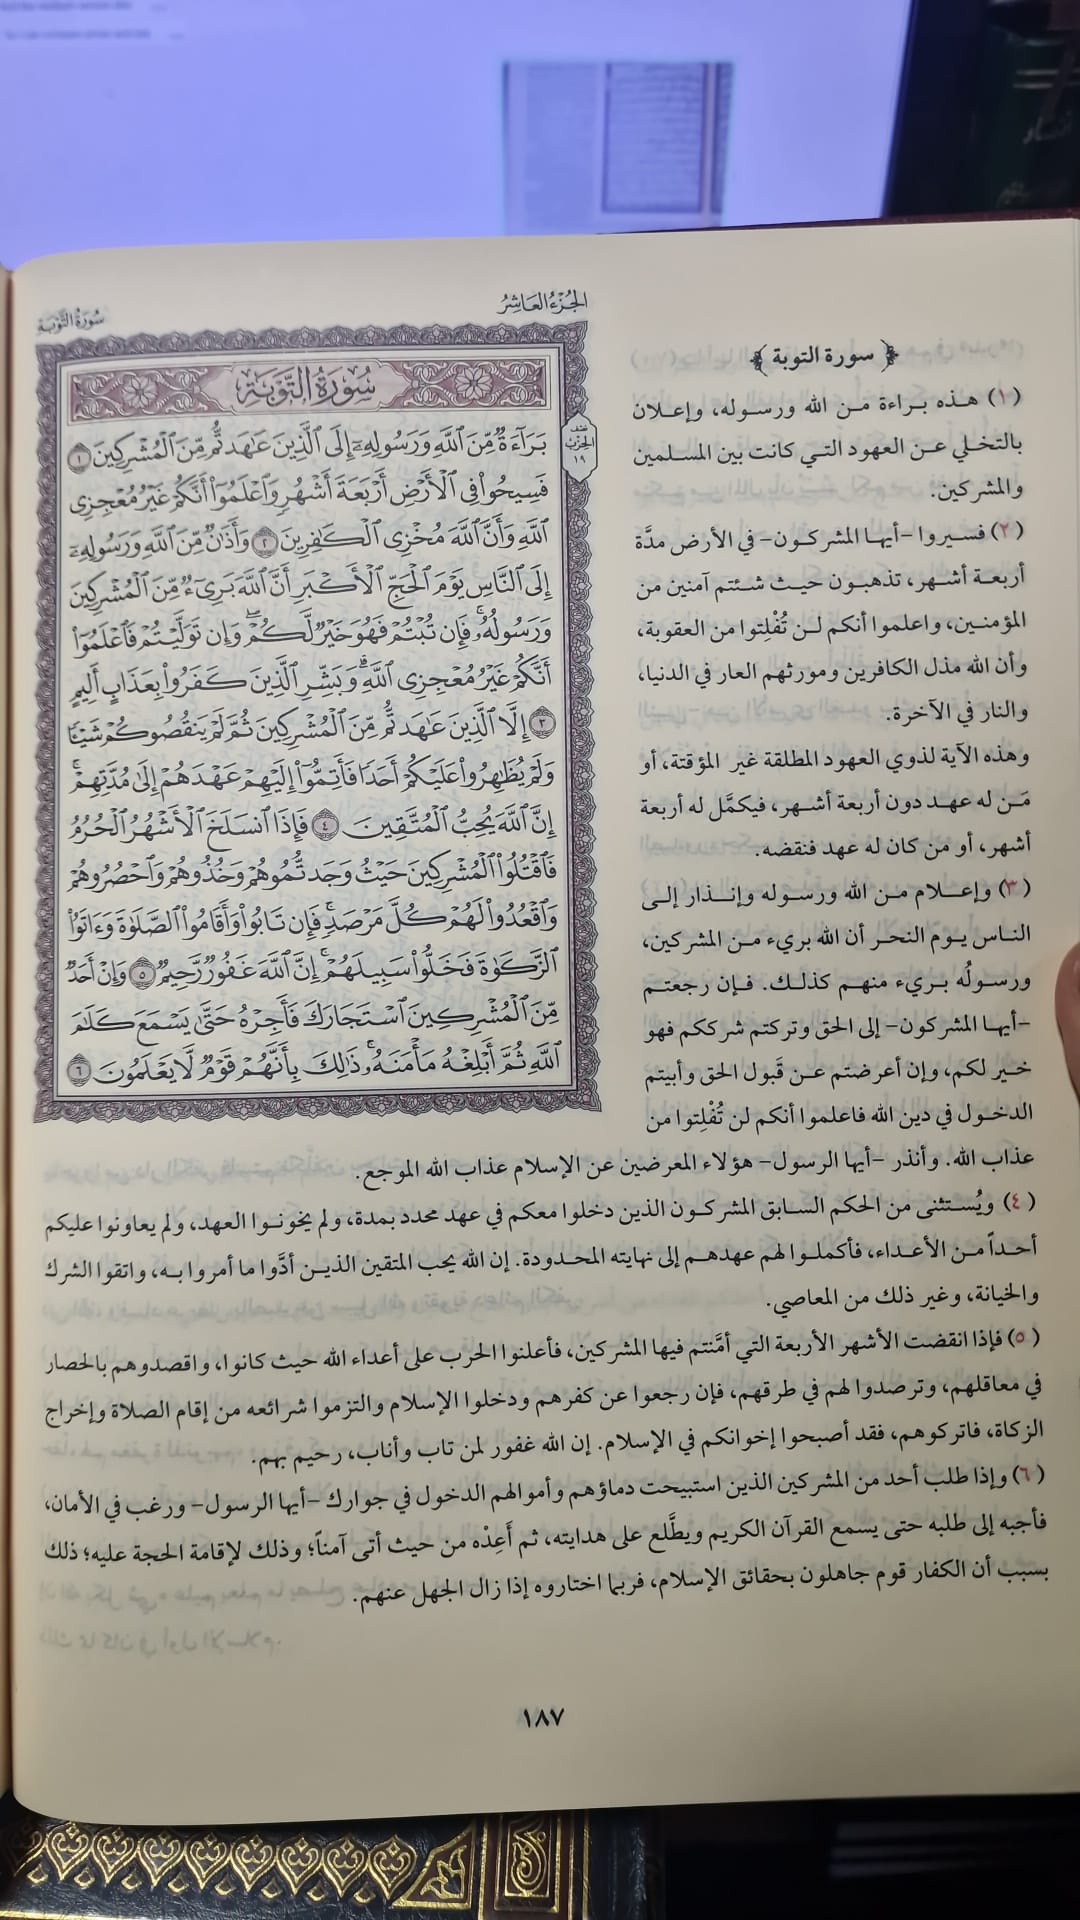 الجُزْءُ العَاشِرُ
سُورَةُ التَّوْبَةِ
سُورَةُ التَّوْبَةِ
نصف
الحزب
١٩
بَرَآءَةٌ مِّنَ ٱللَّهِ وَرَسُولِهِۦٓ إِلَى ٱلَّذِينَ عَٰهَدتُّم مِّنَ ٱلْمُشْرِكِينَ ١
فَسِيحُوا۟ فِى ٱلْأَرْضِ أَرْبَعَةَ أَشْهُرٍ وَٱعْلَمُوٓا۟ أَنَّكُمْ غَيْرُ مُعْجِزِى
ٱللَّهِ وَأَنَّ ٱللَّهَ مُخْزِى ٱلْكَٰفِرِينَ ٢ وَأَذَٰنٌ مِّنَ ٱللَّهِ وَرَسُولِهِۦٓ
إِلَى ٱلنَّاسِ يَوْمَ ٱلْحَجِّ ٱلْأَكْبَرِ أَنَّ ٱللَّهَ بَرِىٓءٌ مِّنَ ٱلْمُشْرِكِينَ
وَرَسُولُهُۥ فَإِن تُبْتُمْ فَهُوَ خَيْرٌ لَّكُمْ وَإِن تَوَلَّيْتُمْ فَٱعْلَمُوٓا۟
أَنَّكُمْ غَيْرُ مُعْجِزِى ٱللَّهِ وَبَشِّرِ ٱلَّذِينَ كَفَرُوا۟ بِعَذَابٍ أَلِيمٍ
٣ إِلَّا ٱلَّذِينَ عَٰهَدتُّم مِّنَ ٱلْمُشْرِكِينَ ثُمَّ لَمْ يَنقُصُوكُمْ شَيْـًٔا
وَلَمْ يُظَٰهِرُوا۟ عَلَيْكُمْ أَحَدًا فَأَتِمُّوٓا۟ إِلَيْهِمْ عَهْدَهُمْ إِلَىٰ مُدَّتِهِمْ
إِنَّ ٱللَّهَ يُحِبُّ ٱلْمُتَّقِينَ ٤ فَإِذَا ٱنسَلَخَ ٱلْأَشْهُرُ ٱلْحُرُمُ
فَٱقْتُلُوا۟ ٱلْمُشْرِكِينَ حَيْثُ وَجَدتُّمُوهُمْ وَخُذُوهُمْ وَٱحْصُرُوهُمْ
وَٱقْعُدُوا۟ لَهُمْ كُلَّ مَرْصَدٍ فَإِن تَابُوا۟ وَأَقَامُوا۟ ٱلصَّلَوٰةَ وَءَاتَوُا۟
ٱلزَّكَوٰةَ فَخَلُّوا۟ سَبِيلَهُمْ إِنَّ ٱللَّهَ غَفُورٌ رَّحِيمٌ ٥ وَإِنْ أَحَدٌ
مِّنَ ٱلْمُشْرِكِينَ ٱسْتَجَارَكَ فَأَجِرْهُ حَتَّىٰ يَسْمَعَ كَلَٰمَ
ٱللَّهِ ثُمَّ أَبْلِغْهُ مَأْمَنَهُۥ ذَٰلِكَ بِأَنَّهُمْ قَوْمٌ لَّا يَعْلَمُونَ ٦
﴿ سورة التوبة ﴾
(١) هذه براءة من الله ورسوله، وإعلان
بالتخلي عن العهود التي كانت بين المسلمين
والمشركين.
(٢) فسيروا -أيها المشركون- في الأرض مدَّة
أربعة أشهر، تذهبون حيث شئتم آمنين من
المؤمنين، واعلموا أنكم لن تُفْلِتوا من العقوبة،
وأن الله مذل الكافرين ومورثهم العار في الدنيا،
والنار في الآخرة.
وهذه الآية لذوي العهود المطلقة غير المؤقتة، أو
مَن له عهد دون أربعة أشهر، فيكمَّل له أربعة
أشهر، أو من كان له عهد فنقضه.
(٣) وإعلام من الله ورسوله وإنذار إلى
الناس يوم النحر أن الله بريء من المشركين،
ورسولُه بريء منهم كذلك. فإن رجعتم
-أيها المشركون- إلى الحق وتركتم شرككم فهو
خير لكم، وإن أعرضتم عن قَبول الحق وأبيتم
الدخول في دين الله فاعلموا أنكم لن تُفْلِتوا من
عذاب الله. وأنذر -أيها الرسول- هؤلاء المعرضين عن الإسلام عذاب الله الموجع.
(٤) ويُستثنى من الحكم السابق المشركون الذين دخلوا معكم في عهد محدد بمدة، ولم يخونوا العهد، ولم يعاونوا عليكم
أحداً من الأعداء، فأكملوا لهم عهدهم إلى نهايته المحدودة. إن الله يحب المتقين الذين أدَّوا ما أمروا به، واتقوا الشرك
والخيانة، وغير ذلك من المعاصي.
(٥) فإذا انقضت الأشهر الأربعة التي أمَّنتم فيها المشركين، فأعلنوا الحرب على أعداء الله حيث كانوا، واقصدوهم بالحصار
في معاقلهم، وترصدوا لهم في طرقهم، فإن رجعوا عن كفرهم ودخلوا الإسلام والتزموا شرائعه من إقام الصلاة وإخراج
الزكاة، فاتركوهم، فقد أصبحوا إخوانكم في الإسلام. إن الله غفور لمن تاب وأناب، رحيم بهم.
(٦) وإذا طلب أحد من المشركين الذين استبيحت دماؤهم وأموالهم الدخول في جوارك -أيها الرسول- ورغب في الأمان،
فأجبه إلى طلبه حتى يسمع القرآن الكريم ويطَّلع على هدايته، ثم أَعِدْه من حيث أتى آمناً؛ وذلك لإقامة الحجة عليه؛ ذلك
بسبب أن الكفار قوم جاهلون بحقائق الإسلام، فربما اختاروه إذا زال الجهل عنهم.
١٨٧